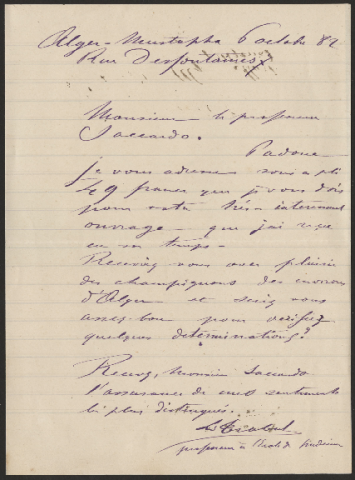 Alger-Mustapha 6 octobre 82
Rue Desfontaines
Monsieur le professeur
Saccardo.
Padoue
je vous adresse sous ce pli
49 francs que je vous dois
pour votre très intéressant
ouvrage - que j'ai reçu
en son temps -
Recevriez vous avec plaisir
des champignons des environs
d'Alger et seriez vous
assez bon pour vérifier
quelques déterminations?
Recevez, Monsieur Saccardo
l'assurance de mes sentiments
les plus distingués.
professeur à l'école de médecine